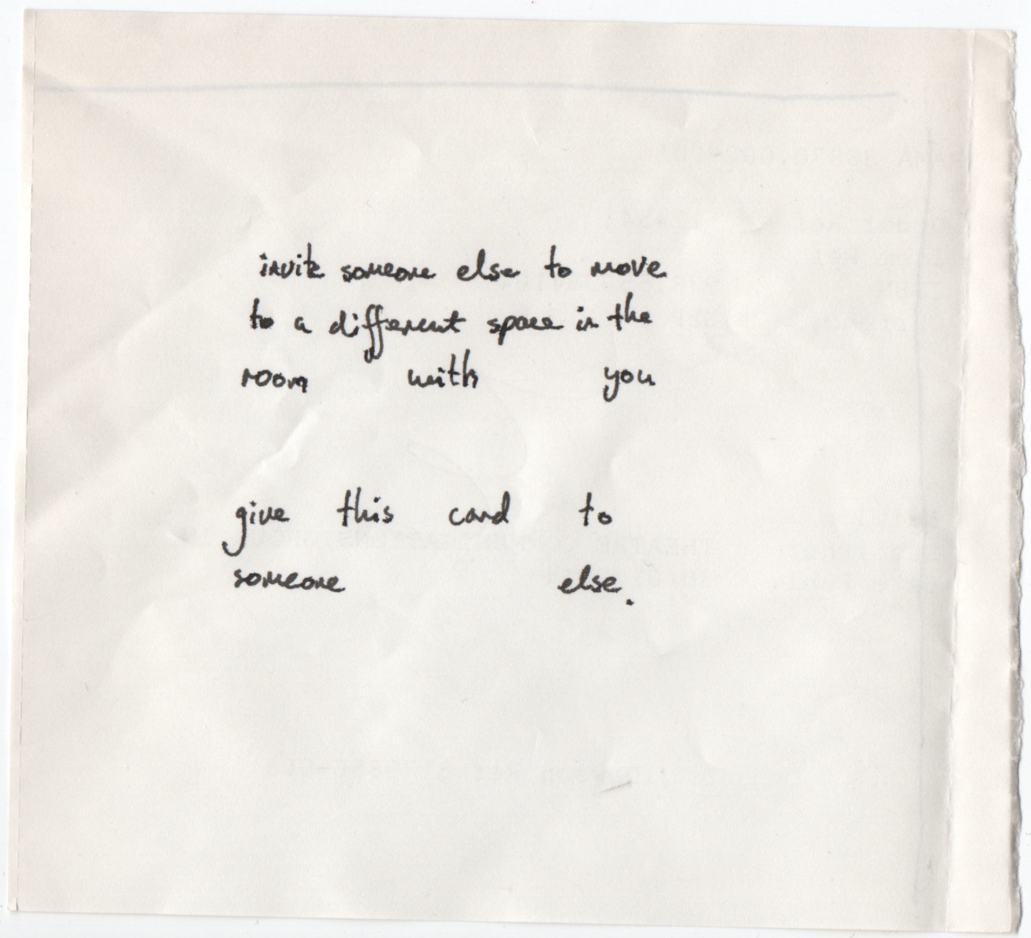 invite someone else to move
to a different space in the
room with you
give this card to
someone else.